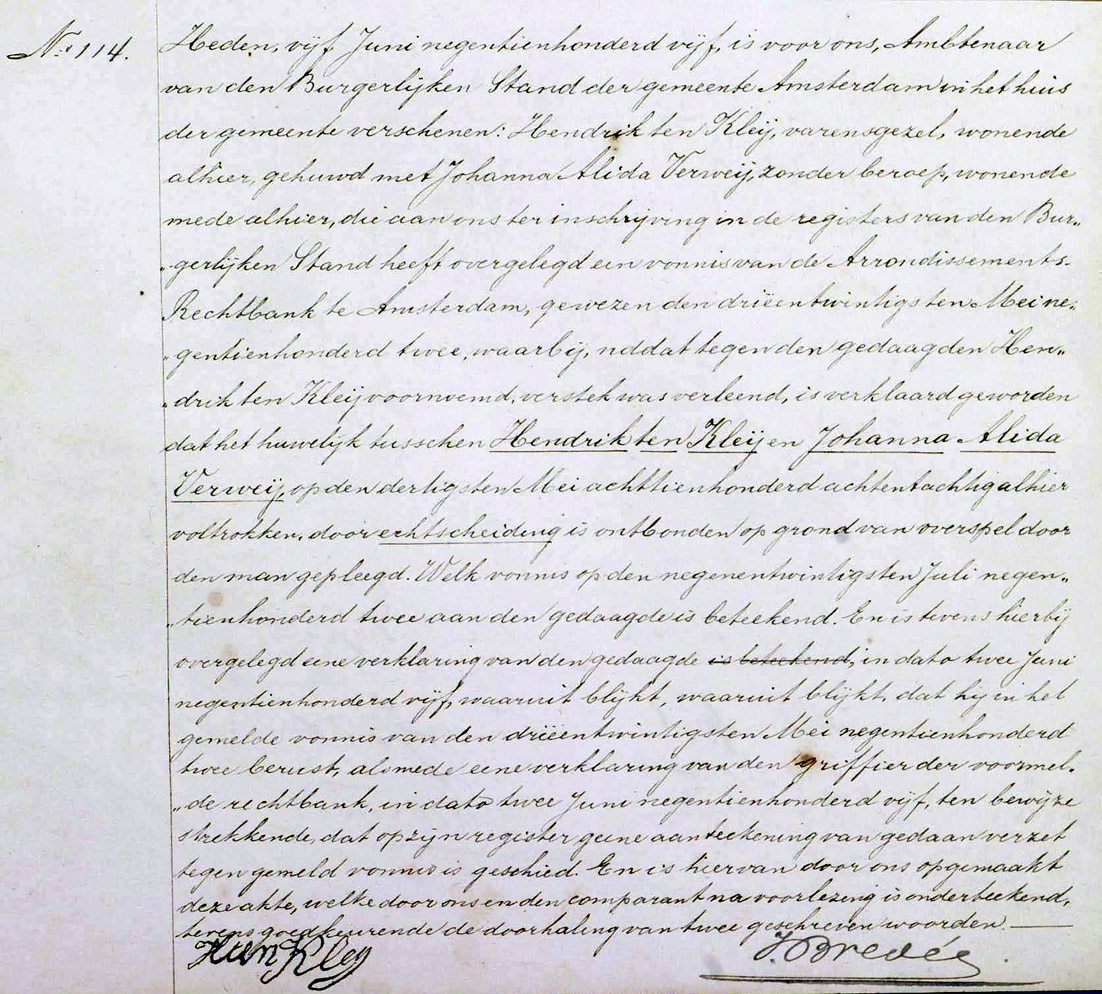 No. 114.
Heden, vijf Juni negentienhonderd vijf, is voor ons, Ambtenaar
van den Burgerlijken Stand der gemeente Amsterdam in het huis
der gemeente verschenen: Hendrik ten Kleij, varensgezel, wonende
alhier, gehuwd met Johanna Alida Verweij, zonder beroep, wonende
mede alhier, die aan ons ter inschrijving in de registers van den Bur„
„gerlijken Stand heeft overgelegd een vonnis van de Arrondissements-
Rechtbank te Amsterdam, gewezen den drieentwintigsten Mei ne„
„gentienhonderd twee, waarbij, nddat tegen den gedaagden Hen„
„drik ten Kleij voornoemd, verstek was verleend, is verklaard geworden
dat het huwelijk tusschen Hendrik ten Kleij en Johanna Alida
Verweij, op den dertigsten Mei achttienhonderd achtentachtig alhier
voltrokken, door echtscheiding is ontbonden op grond van overspel door
den man gepleegd. Welk vonnis op den negenentwintigsten Juli negen„
„tienhonderd twee aan den gedaagde is beteekend. En is tevens hierbij
overgelegd eene verklaring van den gedaagde is beteekend, in dato twee Juni
negentienhonderd vijf, waaruit blijkt, waaruit blijkt, dat hij in het
gemelde vonnis van den drieentwintigsten Mei negentienhonderd
twee berust, alsmede eene verklaring van den griffier der voormel„
„de rechtbank, in dato twee Juni negentienhonderd vijf, ten bewijze
strekkende, dat op zijn register geene aanteekening van gedaan verzet
tegen gemeld vonnis is geschied. En is hiervan door ons opgemaakt
deze akte, welke door ons en den comparant na voorlezing is onderteekend,
tevens goedkeurende de doorhaling van twee geschreven woorden.
Kleij J. Bredée